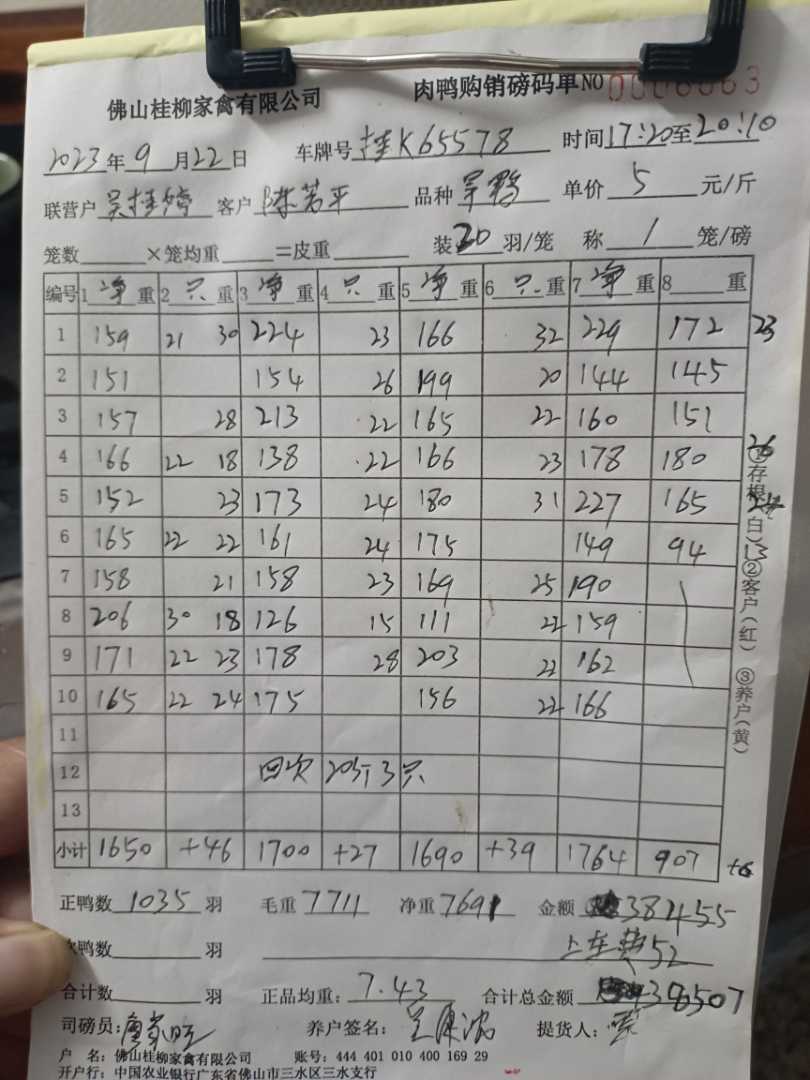 佛山桂柳家禽有限公司 肉鸭购销磅码单 NO
2023年9月22日 车牌号 桂K65578 时间17:20至20:10
联营户 客户 陈芳平 品种 单价 5 元/斤
笼数 ×笼均重 =皮重 装20羽/笼 称 1 笼/磅
编号 1 净 重 2 只 重 3 净 重 4 只 重 5 净 重 6 只 重 7 净 重 8 重
1 159 21 30 224 23 166 32 229 172 23
2 151 154 26 199 20 144 145
3 157 28 213 22 165 22 160 151
4 166 22 18 138 22 166 23 178 180 26
5 152 23 173 24 180 31 227 165 24
6 165 22 22 161 24 175 149 94 13
7 158 21 158 23 169 25 190
8 206 30 18 126 15 111 22 159
9 171 22 23 178 28 203 22 162
10 165 22 24 175 156 22 166
11
12 回次 20斤3只
13
小计 1650 +46 1700 +27 1690 +39 1764 907 +6
正鸭数 1035 羽 毛重 7711 净重 7691 金额 38455
次鸭数 羽 上车费52
合计数 羽 正品均重: 7.43 合计总金额 38507
司磅员: 养户签名: 提货人:
户 名: 佛山桂柳家禽有限公司 账号: 444 401 010 400 169 29
开户行: 中国农业银行广东省佛山市三水区三水支行
①存根(白)②客户(红) ③养户(黄)